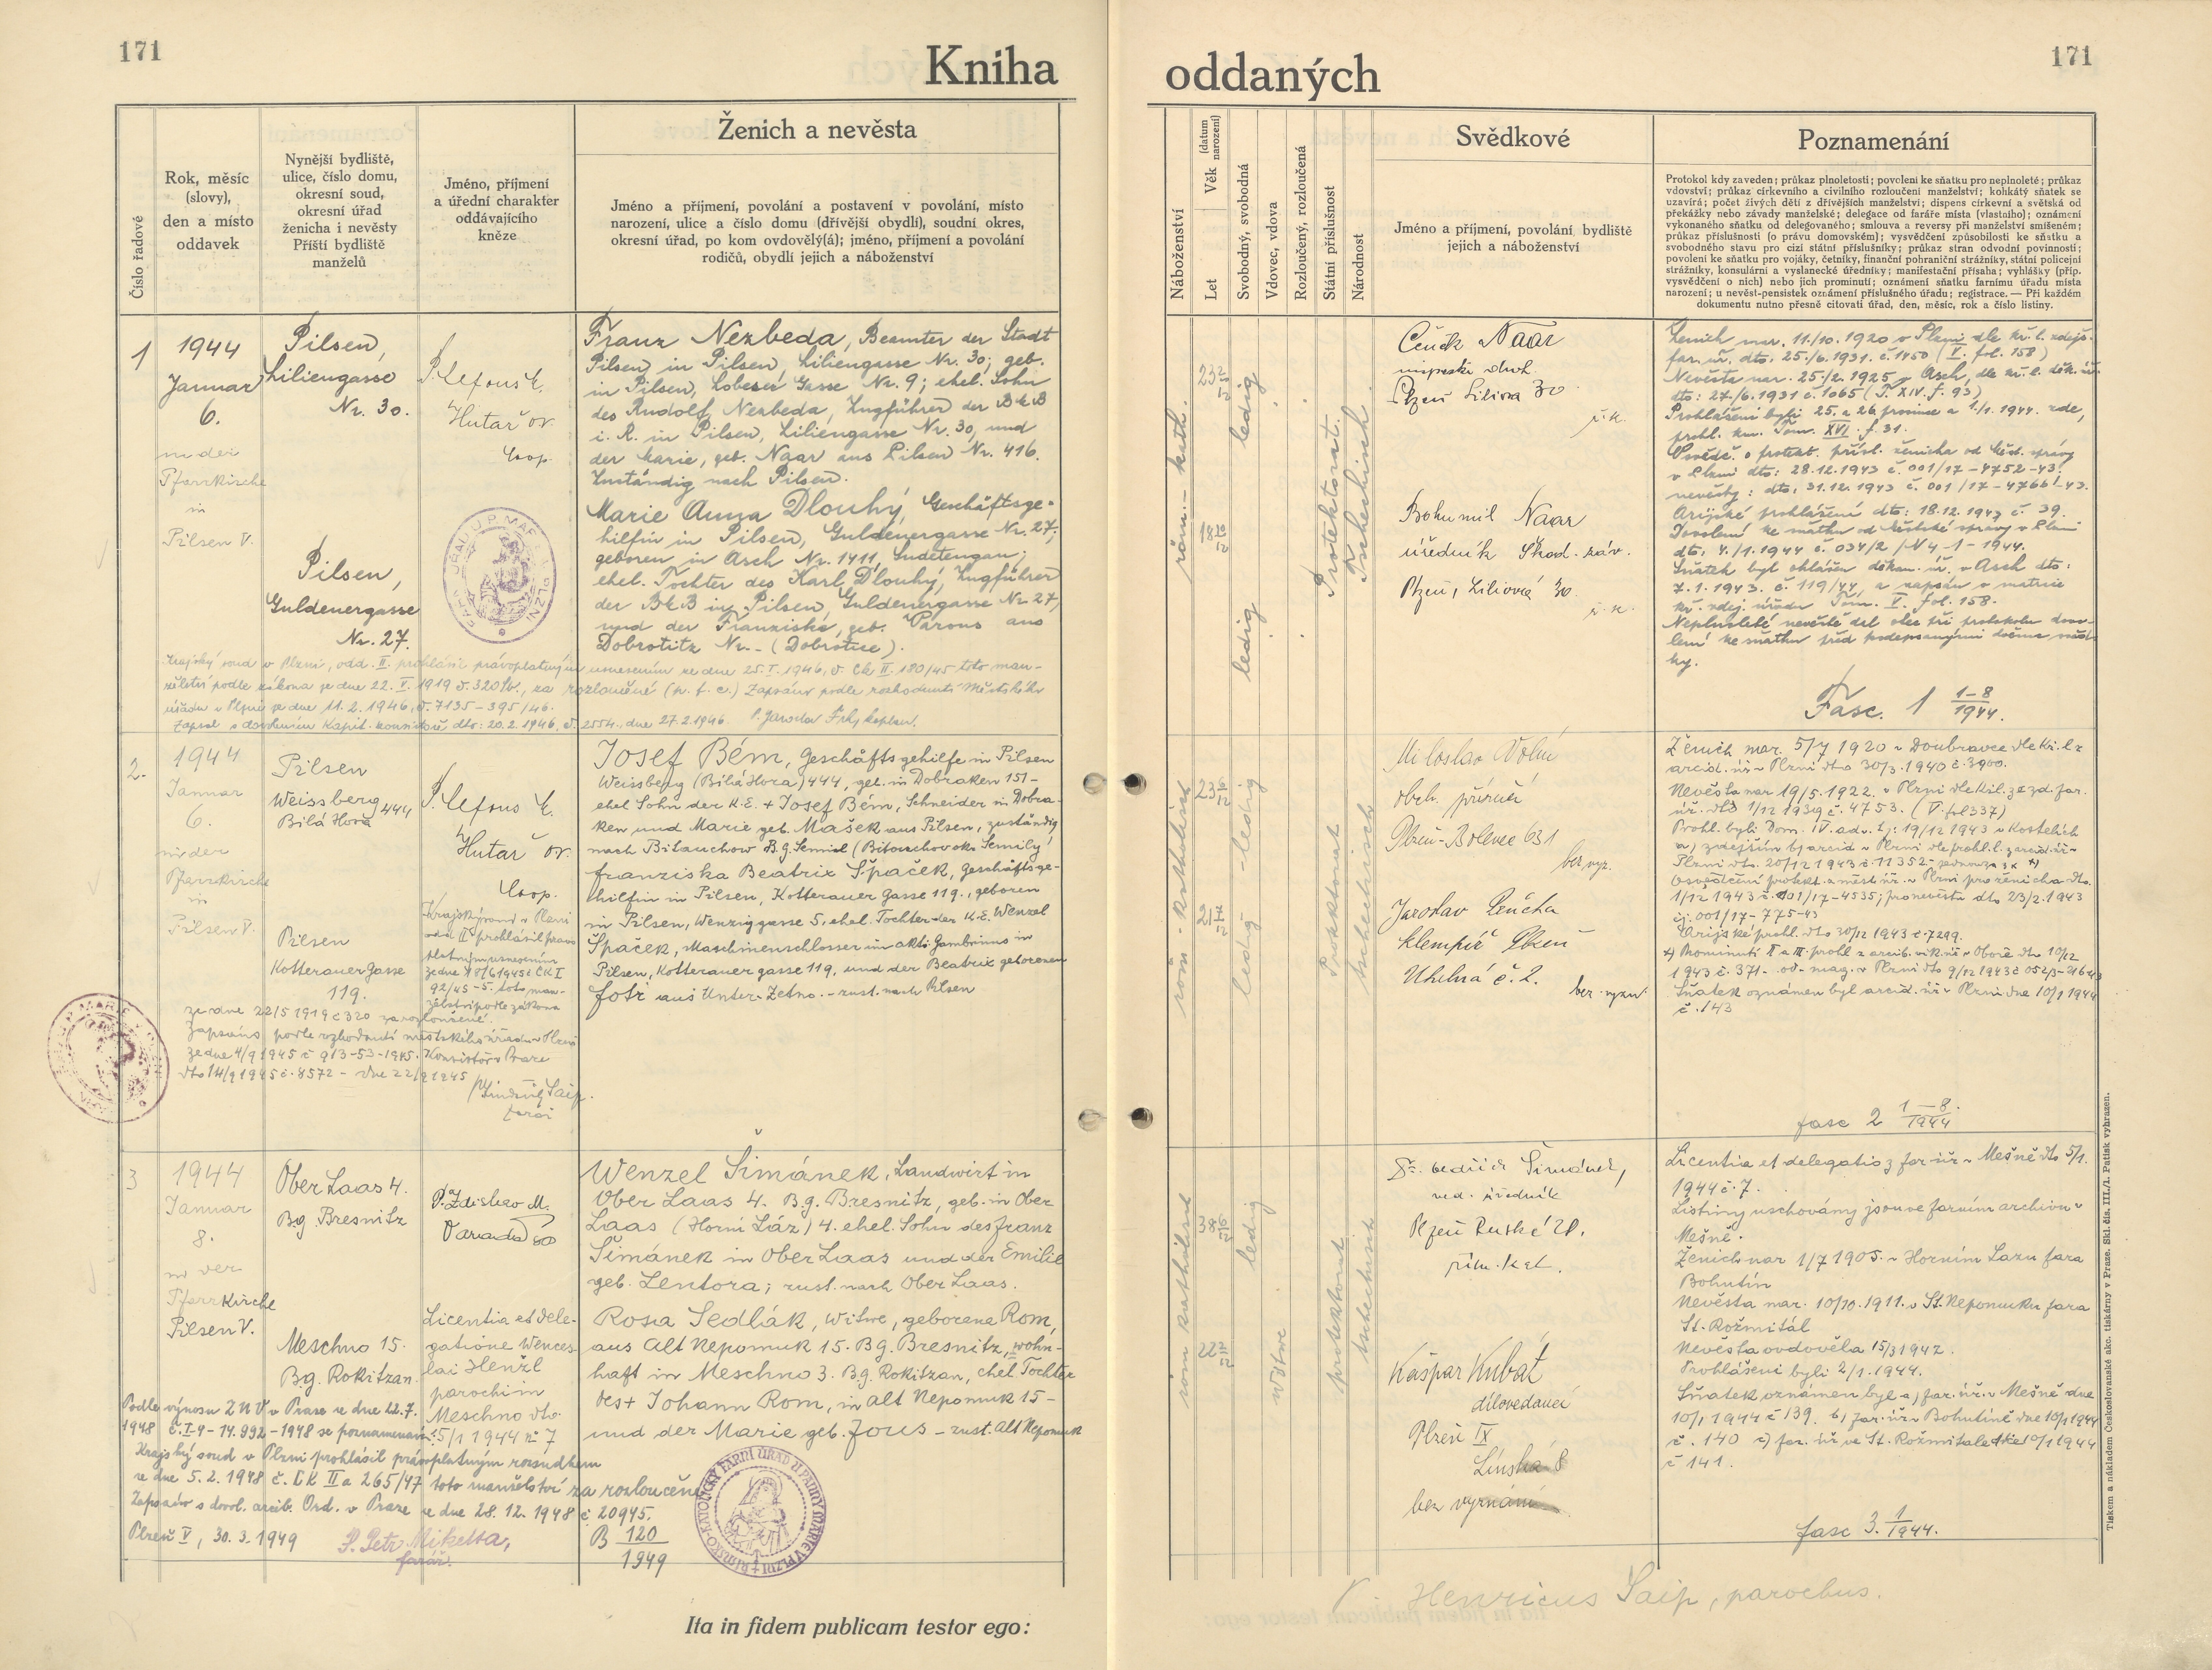 171
Kniha
Číslo řadové
Rok, měsíc
(slovy),
den a místo
oddavek
Nynější bydliště,
ulice, číslo domu,
okresní soud,
okresní úřad
ženicha i nevěsty
Příští bydliště
manželů
Jméno, příjmení
a úřední charakter
oddávajícího
kněze
Ženich a nevěsta
Jméno a příjmení, povolání a postavení v povolání, místo
narození, ulice a číslo domu (dřívější obydlí), soudní okres,
okresní úřad, po kom ovdovělý(á); jméno, příjmení a povolání
rodičů, obydlí jejich a náboženství
1
1944
Januar
6.
in der
Pfarrkirche
in
Pilsen V.
Pilsen,
Liliengasse
Nr. 30.
Pilsen,
Guldenergasse
Nr. 27.
Hutař
Coop.
Franz Nezbeda, Beamter der Stadt
Pilsen in Pilsen, Liliengasse Nr. 30; geb.
in Pilsen, Lobeser Gasse Nr. 9; ehel. Sohn
des Rudolf Nezbeda, Zugführer der BMB
i. R. in Pilsen, Liliengasse Nr. 30, und
der Marie, geb. Naar aus Pilsen Nr. 416.
Zuständig nach Pilsen.
Marie Anna Dlouhý, Geschäftsge-
hilfin in Pilsen, Guldenergasse Nr. 27;
geboren in Asch Nr. 1411, Sudetengau;
ehel. Tochter des Karl Dlouhý, Zugführer
der BMB in Pilsen, Guldenergasse Nr. 27,
und der Franziska, geb. Váross aus
Dobrotitz Nr. - (Dobrotice).
Krajský soud v Plzni, odd. II. prohlásil právoplatným usnesením ze dne 25. I. 1946, č. Ck II. 180/45 toto man-
želství podle zákona ze dne 22. V. 1919 č. 320 Sb., za rozloučené (p. f. c.) Zapsáno podle rozhodnutí Městského
úřadu v Plzni ze dne 11. 2. 1946, č. 7135 - 395/46.
Zapsal s dovolením Kapit. konsistoře dto: 20.2.1946. č. 2554., dne 27.2.1946. P. Jaroslav kaplan.
2.
1944
Januar
6.
in der
Pfarrkirche
in
Pilsen V.
Pilsen
Weissberg 444
Bílá Hora
Pilsen
Kotterauer Gasse
119.
Hutař
Coop.
Josef Bém, Geschäftsgehilfe in Pilsen
Weissberg (Bílá Hora) 444, geb. in Dobraken 151 -
ehel. Sohn der K.E. + Josef Bém, Schneider in Dobra-
ken und Marie geb. Mašek aus Pilsen, zuständig
nach Bitauchow B.g. Semil (Bitouchov ok. Semily)
Franziska Beatrix Špaček, Geschäftsge-
hilfin in Pilsen, Kotterauer Gasse 119., geboren
in Pilsen, Wenziggasse 5, ehel. Tochter der K.E. Wenzel
Špaček, Maschinenschlosser im akt. Gambrinus in
Pilsen, Kotterauer gasse 119, und der Beatrix geborenen
Fotr aus Unter-Zetno. - zust. nach Pilsen
Krajský soud v Plzni
odd II prohlásil pravo
platným usnesením
ze dne 18/6 1945 č CK I
92/45 - 5. toto man-
želství podle zákona
ze dne 22/5 1919 č 320 za rozloučené.
Zapsáno podle rozhodnutí městského úřadu v Plzni
ze dne 4/9 1945 č 913-53-1945. Konsistoř v Praze
dto 14/9 1945 č. 8572 - dne 22/9 1945
Jindřich Šaip
farář
3
1944
Januar
8.
in der
Pfarrkirche
Pilsen V.
Ober Laas 4.
B.g. Bresnitz
Meschno 15.
B.g. Rokitzan.
P. Zdislav M.
Licentia et dele-
gatione Wences-
lai Henžl
parochi in
Meschno dto.
5/1 1944 nº 7
Wenzel Šimánek, Landwirt in
Ober Laas 4. B.g. Bresnitz, geb. in Ober
Laas (Horní Láz) 4. ehel. Sohn des Franz
Šimánek in Ober Laas und der Emilie
geb. Lentora; zust. nach Ober Laas.
Rosa Sedlák, Witwe, geborene Rom,
aus Alt Nepomuk 15. B.g. Bresnitz, wohn-
haft in Meschno 3. B.g. Rokitzan, ehel. Tochter
des + Johann Rom, in Alt Nepomuk 15 -
und der Marie geb. Jous - zust. Alt Nepomuk
Podle výnosu ZNV v Praze ze dne 22.7.
1948 č. I-9 - 14.992 - 1948 se poznamenává:
Krajský soud v Plzni prohlásil právoplatným rozsudkem
ze dne 5. 2. 1948 č. Ck IIa 265/47 toto manželství za rozloučené
Zapsáno s dovol. arcib. Ord. v Praze ze dne 28. 12. 1948 č 20945.
Plzeň V, 30. 3. 1949
P. Petr Mikelta,
farář.
B 120
1949
Ita in fidem publicam testor ego:
171
oddaných
Náboženství
Let
Věk
(datum narození)
Svobodný, svobodná
Vdovec, vdova
Rozloučený, rozloučená
Státní příslušnost
Národnost
Svědkové
Jméno a příjmení, povolání bydliště
jejich a náboženství
Poznamenání
Protokol kdy zaveden; průkaz plnoletosti; povolení ke sňatku pro neplnoleté; průkaz
vdovství; průkaz církevního a civilního rozloučení manželství; kohkátý sňatek se
uzavírá; počet živých dětí z dřívějších manželství; dispens církevní a světská od
překážky nebo závady manželské; delegace od faráře místa (vlastního); oznámení
vykonaného sňatku od delegovaného; smlouva a reversy při manželství smíšeném;
průkaz příslušnosti (o právu domovském); vysvědčení způsobilosti ke sňatku a
svobodného stavu pro cizí státní příslušníky; průkaz stran odvodní povinnosti;
povolení ke sňatku pro vojáky, četníky, finanční pohraniční strážníky, státní policejní
strážníky, konsulární a vyslanecké úředníky; manifestační přísaha; vyhlášky (příp.
vysvědčení o nich) nebo jich prominutí; oznámení sňatku farnímu úřadu místa
narození; u nevěst-pensistek oznámení příslušného úřadu; registrace. — Při každém
dokumentu nutno přesně citovati úřad, den, měsíc, rok a číslo listiny.
röm. - kath.
23
18
ledig
ledig
Protektorat.
Tschechisch.
Čeněk Naar
Plzeň Liliová 30
ř. k.
Bohumil Naar
úředník Škod. záv.
Plzeň, Liliová 30.
ř. k.
Ženich nar. 11./10. 1920 v Plzni dle kř. l. zdejš.
far. úř. dto. 25./6. 1931. č. 1450 (V. fol. 158)
Nevěsta nar. 25./2. 1925 v Asch, dle kř. l. děk. úř.
dto: 27./6. 1931 č. 1065 (T. XIV. f. 93)
Prohlášeni byli 25. a 26 prosince a 1./1. 1944. zde,
prohl. kn. Tom. XVI. f. 31.
Osvědč. o protekt. přísl. ženicha od měst. správy
v Plzni dto: 28.12.1943 č. 001/17 - 4752 - 43;
nevěsty: dto: 31.12. 1943 č. 001/17 - 4766 - 43.
Arijské prohlášení dto: 18.12. 1943 č. 39.
Dovolení ke sňatku od městské správy v Plzni
dto. 4./1. 1944 č. 034/2 /N 4 - 1 - 1944.
Sňatek byl ohlášen děkan. úř. v Asch dto:
7. 1. 1943. č. 119/44, a zapsán v matrice
kř. zdej. úřadu Tom. V. fol. 158.
Neplnoleté nevěstě dal otec při protokolu dovo-
lení ke sňatku před podepsanými dvěma svěd-
ky.
Fasc. 1 1-8
1944.
röm. - katholisch
23
21
ledig - ledig
ledig
Protektorat
tschechisch
Miloslav Volný
obch. příručí
Plzeň-Bolevec 631
bez vyz.
Jaroslav
klempíř Plzeň
Uhelná č. 2.
bez vyzn.
Ženich nar. 5/7 1920 v Doubravce dle kř. l. z
arcid. úř. v Plzni dto 30/3. 1940 č. 3900.
Nevěsta nar 19/5. 1922. v Plzni dle kř. l. ze zd. far.
úř. dto 1/12 1939 č. 4753. (V. fol 337)
Prohl. byli Dom. IV. adv. tj: 19/12 1943 v Kostelích
a) zdejším b) arcid. v Plzni dle prohl. l. z arcid. úř. v
Plzni dto. 20/12 1943 č. 11352 - jednou za 3x +)
Osvědčení protekt. a měst. úř. v Plzni pro ženicha dto.
1/12 1943 č. 001/17 - 4535; pro nevěstu dto 23/2. 1943
čj. 001/17 - 775-43
Arijské prohl. dto 30/12 1943 č. 7299.
1943 č. 371 - od mag. v Plzni dto 9/12 1943 č 052/3-216-43
Sňatek oznámen byl arcid. úř. v Plzni dne 10/1 1944
č. 143
fasc 2 1-8.
1944
röm katholisch
38
22
ledig
witwe
protektorat
tschechisch
Šimánek,
úředník
Plzeň Ruská 20.
řím. kat.
Kašpar Kubát
dílovedoucí
Plzeň IX
8
bez vyznání
Licentia et delegatio z far. úř. v Mešně dto 5/1.
1944 č. 7.
Listiny uschovány jsou ve farním archivu v
Mešně.
Ženich nar 1/7 1905. v Horním Lazu fara
Bohutín
Nevěsta nar. 10/10. 1911. v St. Nepomuku fara
St. Rožmitál
Nevěsta ovdověla 15/3 1942.
Prohlášeni byli 2/1. 1944.
Sňatek oznámen byl a) far. úř. v Mešně dne
10/1 1944 č 139. b) far. úř. v Bohutíně dne 10/1 1944
č. 140 c) far. úř ve St. Rožmitále dne 10/1 1944
č 141.
fasc 3. 1
1944.
Henricus Šaip, parochus.
Tiskem a nákladem Československé akc. tiskárny v Praze. Skl. čís. III./1. Patisk vyhrazen.